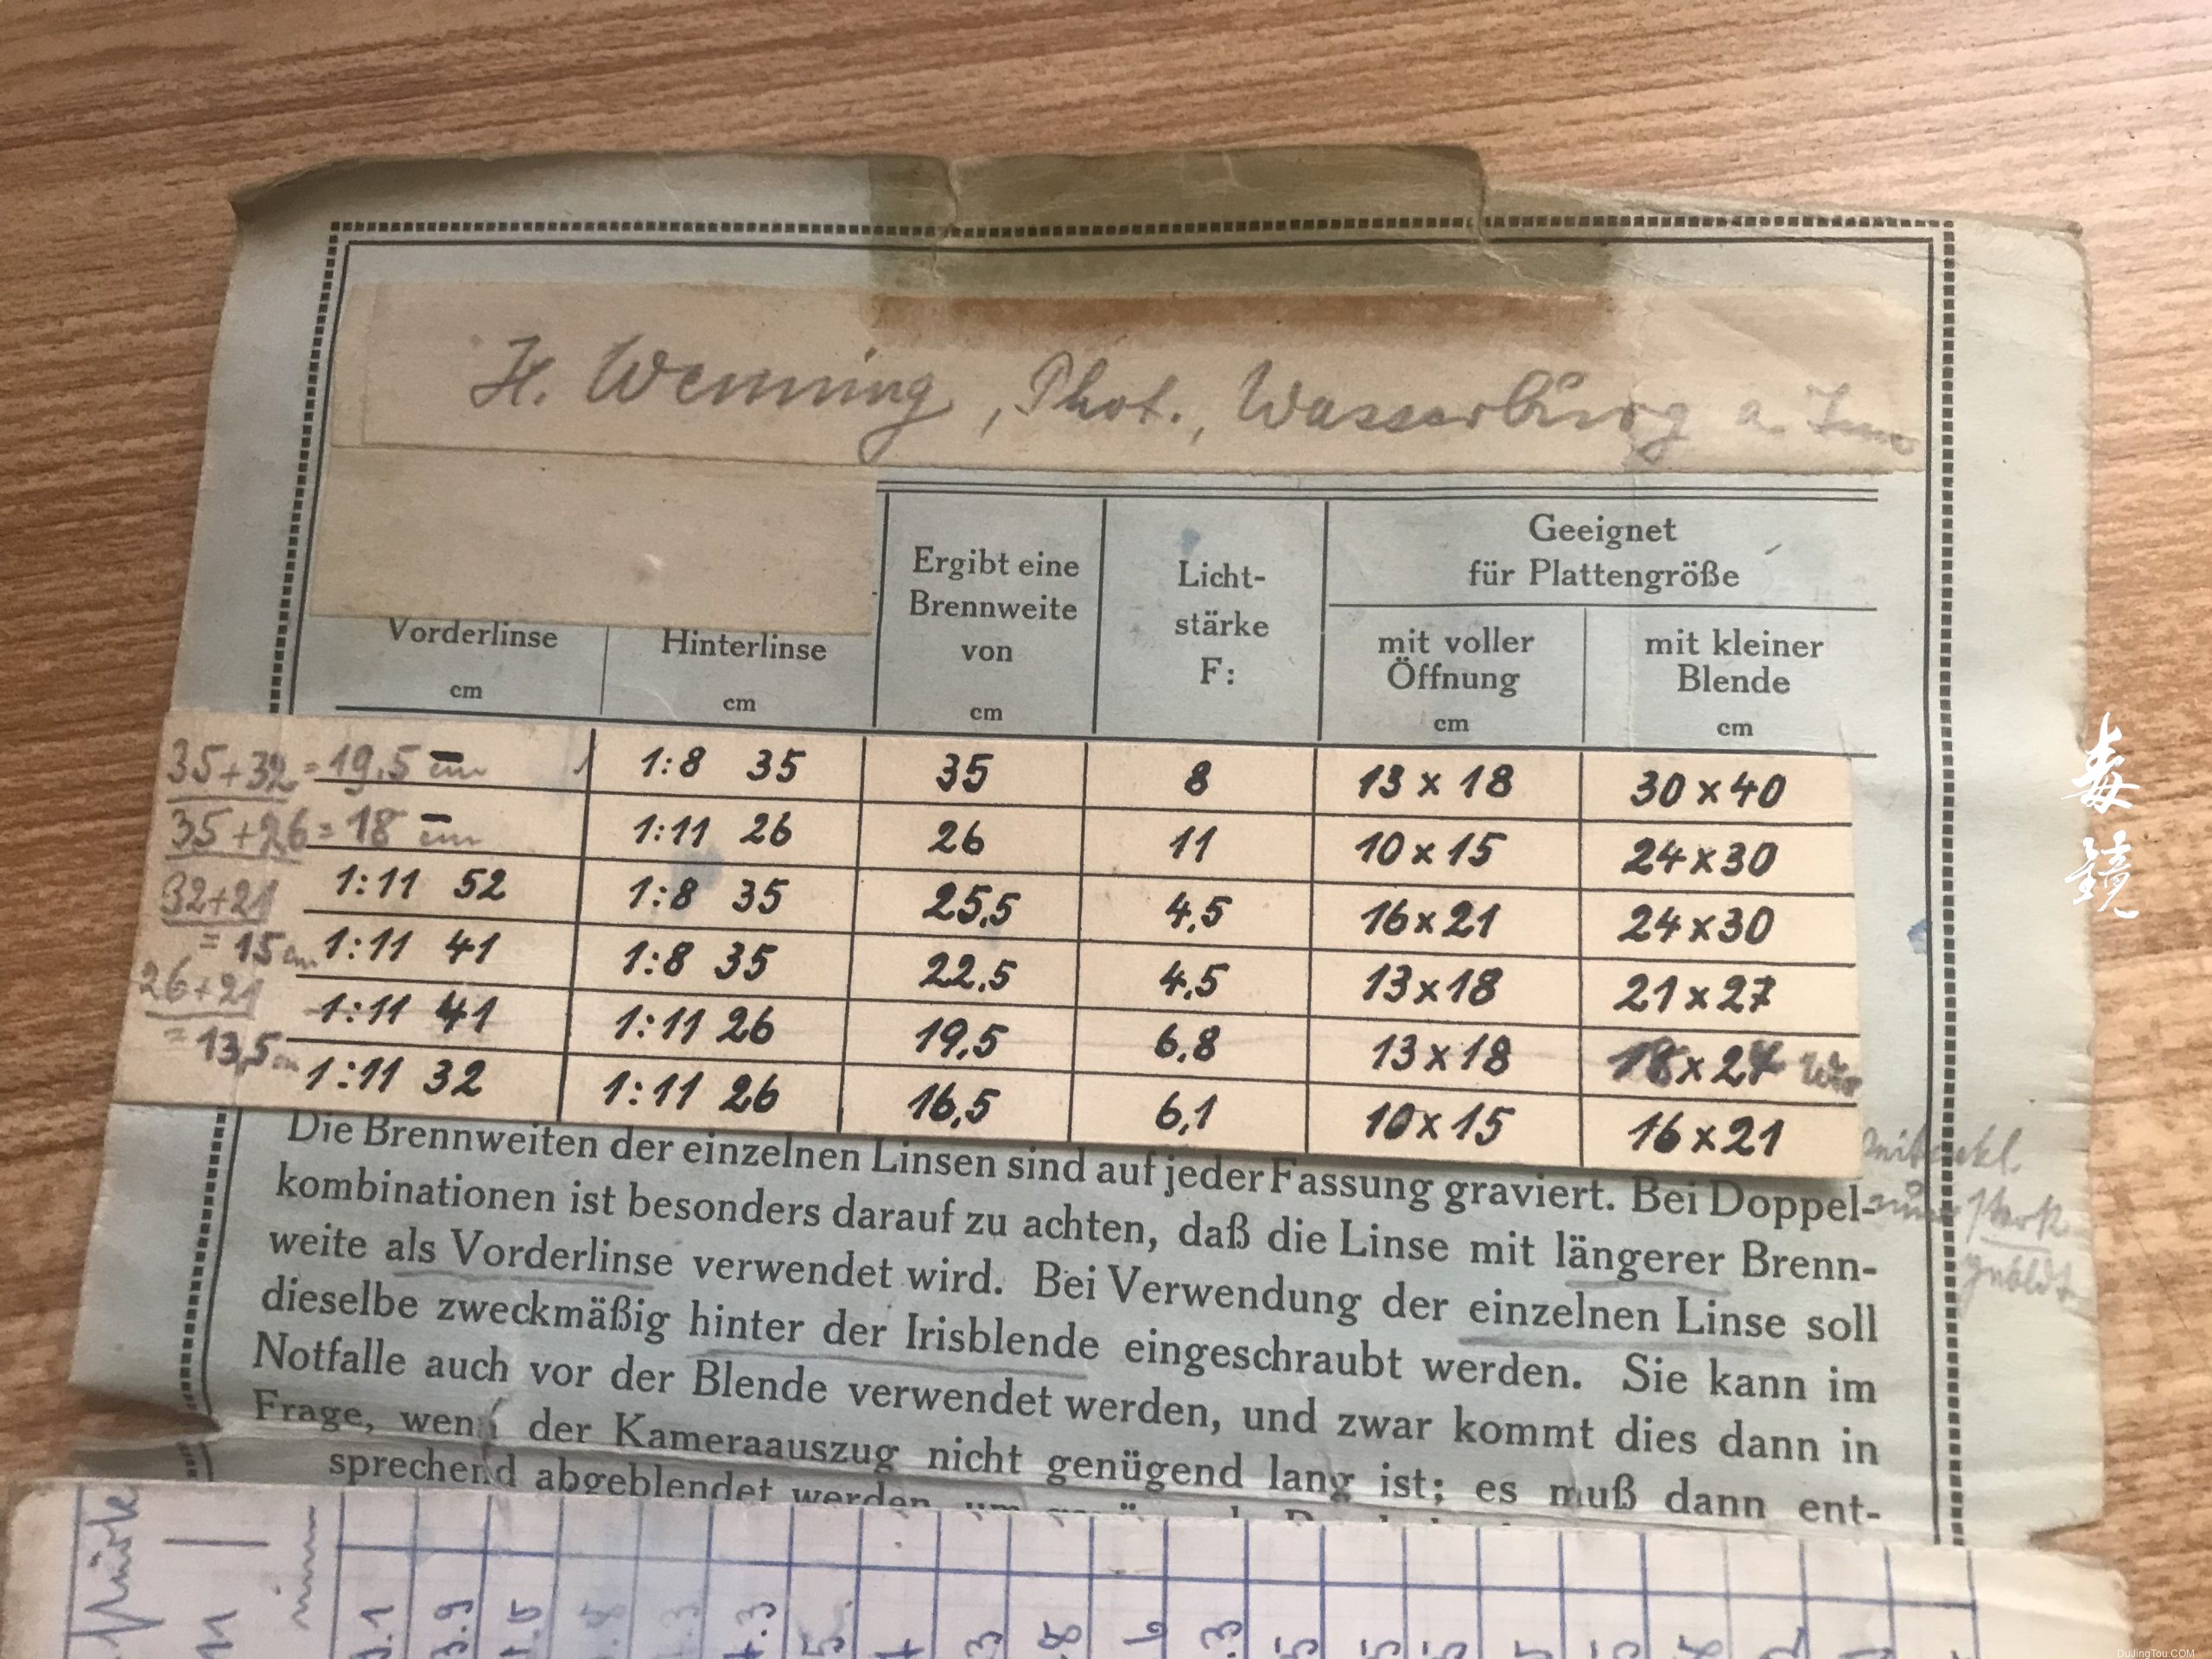 H. Wenning, Phot., Wasserburg a. Inn
Ergibt eine Brennweite von cm
Licht-stärke F:
Geeignet für Plattengröße
Vorderlinse cm
Hinterlinse cm
mit voller Öffnung cm
mit kleiner Blende cm
35+32 = 19,5 cm 1:8 35 35 8 13 x 18 30 x 40
35+26 = 18 cm 1:11 26 26 11 10 x 15 24 x 30
32+21 = 15 cm 1:11 52 1:8 35 25,5 4,5 16 x 21 24 x 30
1:11 41 1:8 35 22,5 4,5 13 x 18 21 x 27
26+21 = 13,5 cm 1:11 41 1:11 26 19,5 6,8 13 x 18 18 x 24
1:11 32 1:11 26 16,5 6,1 10 x 15 16 x 21
Die Brennweiten der einzelnen Linsen sind auf jeder Fassung graviert. Bei Doppel-
kombinationen ist besonders darauf zu achten, daß die Linse mit längerer Brenn-
weite als Vorderlinse verwendet wird. Bei Verwendung der einzelnen Linse soll
dieselbe zweckmäßig hinter der Irisblende eingeschraubt werden. Sie kann im
Notfalle auch vor der Blende verwendet werden, und zwar kommt dies dann in
Frage, wenn der Kameraauszug nicht genügend lang ist; es muß dann ent-
sprechend abgeblendet werden
毒镜
DuJingTou.COM